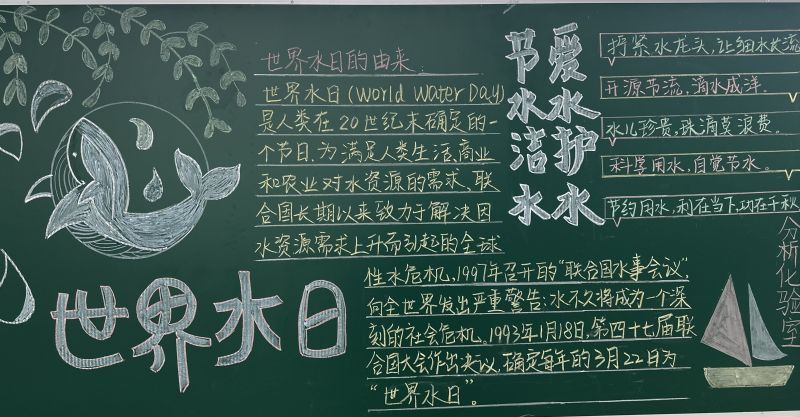 世界水日的由来:
世界水日(World Water Day)
是人类在20世纪末确定的一
个节日.为满足人类生活、商业
和农业对水资源的需求、联
合国长期以来致力于解决因
水资源需求上升而引起的全球
性水危机,1997年召开的“联合国水事会议”,
向全世界发出严重警告:水不久将成为一个深
刻的社会危机。1993年1月18日,第四十七届联
合国大会作出决议,确定每年的3月22日为
“世界水日”。
世界水日
节水洁水
爱水护水
拧紧水龙头,让细水长流
开源节流,滴水成洋.
水儿珍贵,珠滴莫浪费.
科学用水,自觉节水。
节约用水,利在当下,功在千秋
分析化验室